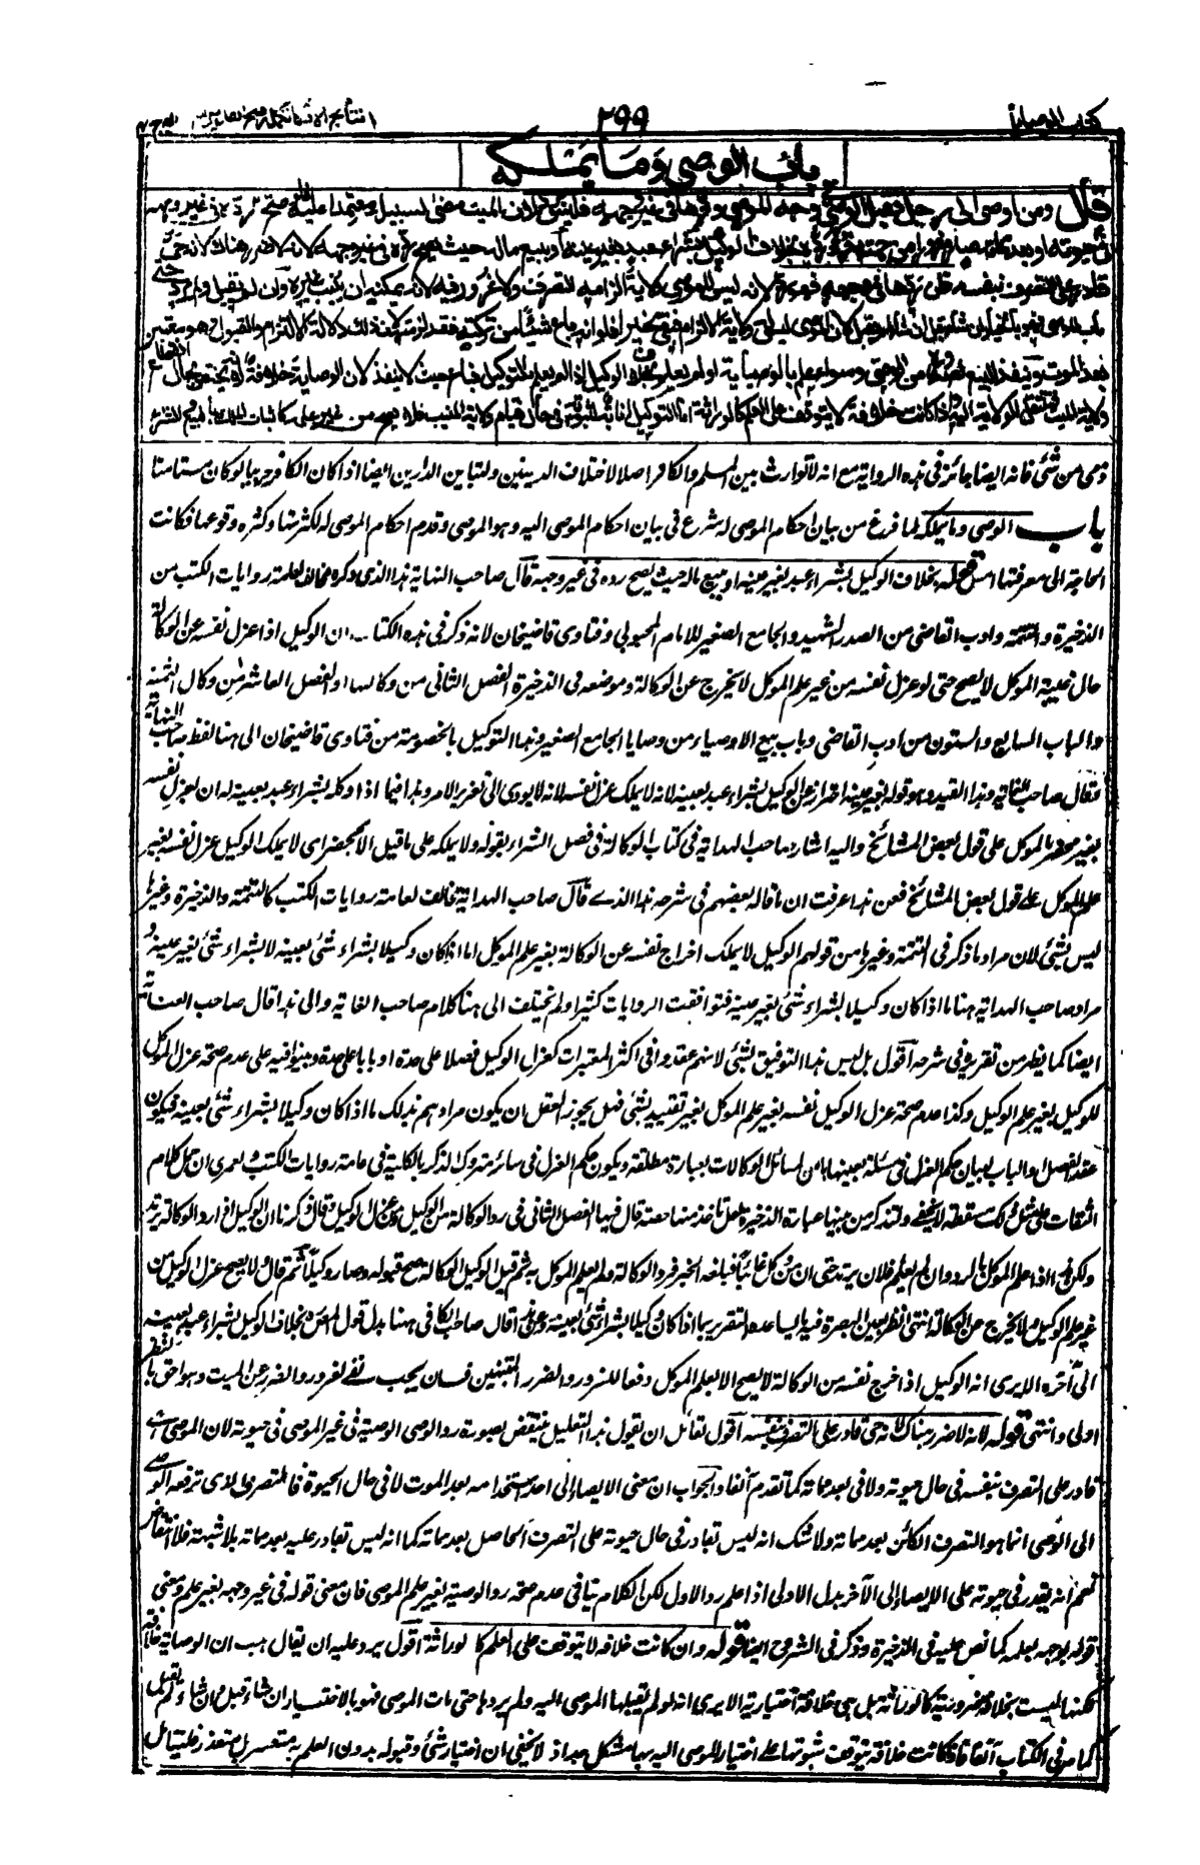 كتاب الوصايا
٢٩٩
نتائج الافكار تكملة فتح القدير
باب الوصي وما يملكه
قال ومن اوصى الى رجل فقبل الوصي في وجه الموصي وردها في غير وجهه فليس برد لان الميت مضى لسبيله معتمدا عليه فلو صح رده في غير وجهه
في حيوته او بعد مماته صار مغرورا من جهته فرد رده بخلاف الوكيل بشراء عبد بغير عينه او ببيع ماله حيث يصح رده في غير وجهه لانه لا ضرر هناك لانه حي
قادر على التصرف بنفسه فان ردها في وجهه فهو رد لانه ليس للموصي ولاية الزامه التصرف ولا غرور فيه لانه يمكنه ان ينيب غيره وان لم يقبل ولم يرد حتى
مات الموصي فهو بالخيار ان شاء قبل وان شاء لم يقبل لان الموصي ليس له ولاية الالزام فبقي مخيرا فلو انه باع شيئا من تركته فقد لزمته لان ذلك دلالة الالتزام والقبول وهو معتبر
بعد الموت وينفذ البيع لصدوره من الوصي وسواء علم بالوصاية او لم يعلم بخلاف الوكيل اذا لم يعلم بالتوكيل فباع حيث لا ينفذ لان الوصاية خلافة لانه يختص بحال انقطاع
ولاية الميت فتنتقل الولاية اليه واذا كانت خلافة لا يتوقف على العلم كالوراثة اما التوكيل انابة لثبوته في حال قيام ولاية المنيب فلا يصح من غير علمه كاثبات الملك بالبيع والشراء
ذمي من شئ فانه ايضا جائز في هذه الرواية مع انه لا توارث بين المسلم والكافر اصلا لاختلاف الدينين ولتباين الدارين ايضا اذا كان الكافر حربيا لو كان مستامنا
باب الوصي وما يملكه لما فرغ من بيان احكام الموصى له شرع في بيان احكام الموصى اليه وهو الوصي وقدم احكام الموصى له لكثرتها وكثرة وقوعها فكانت
الحاجة الى معرفتها امس قوله بخلاف الوكيل بشراء عبد بغير عينه او ببيع ماله حيث يصح رده في غير وجهه قال صاحب النهاية هذا الذي ذكره مخالف لعامة روايات الكتب من
الذخيرة والتتمة وادب القاضي من الصدر الشهيد والجامع الصغير للامام المحبوبي وفتاوى قاضيخان لانه ذكر في هذه الكتب ان الوكيل اذا عزل نفسه عن الوكالة
حال غيبة الموكل لا يصح حتى لو عزل نفسه من غير علم الموكل لا يخرج عن الوكالة وموضعه في الذخيرة الفصل الثاني من وكالتها والفصل العاشر من وكال التتمة
والباب السابع والستون من ادب القاضي وباب بيع الاوصياء من وصايا الجامع الصغير وهذا التوكيل بالخصومة من فتاوى قاضيخان الى هنا لفظ صاحب النهاية
فقال صاحب الغاية وهذا القيد وهو قوله بغير عينه احتراز عن الوكيل بشراء عبد بعينه لانه لا يملك عزل نفسه لانه لا يودي الى تغرير الامر وهذا فيما اذا وكله بشراء عبد بعينه له ان يعزل نفسه
بغير محضر الموكل على قول بعض المشائخ واليه اشار صاحب الهداية في كتاب الوكالة في فصل الشراء بقوله ولا يملكه على ما قيل الا بمحضر اي لا يملك الوكيل عزل نفسه بغير
علم الموكل على قول بعض المشائخ فعن هذا عرفت ان ما قاله بعضهم في شرحه هذا الذي قال صاحب الهداية مخالف لعامة روايات الكتب كالتتمة والذخيرة وغيرها
ليس بشئ لان مراد ما ذكر في التتمة وغيرها من قولهم الوكيل لا يملك اخراج نفسه عن الوكالة بغير علم الموكل اما اذا كان وكيلا بشراء شئ بعينه لا بشراء شئ بغير عينه و
مراد صاحب الهداية هنا ما اذا كان وكيلا بشراء شئ بغير عينه فتوافقت الروايات كثيرا ولم تختلف الى هنا كلام صاحب الغاية والى هذا قال صاحب العناية
ايضا كما يظهر من تقريره في شرحه اقول بل ليس هذا التوفيق بشئ لانهم عقدوا في اكثر المعتبرات لعزل الوكيل فصلا على حدة او بابا على حدة وبينوا فيه على عدم صحة عزل الموكل
للوكيل بغير علم الوكيل وكذا عدم صحة عزل الوكيل نفسه بغير علم الموكل بغير تقييد بشئ فهل يجوز العقل ان يكون مرادهم بذلك ما اذا كان وكيلا بشراء شئ بعينه فيكون
عقد الفصل والباب لبيان حكم العزل في مسئلة بعينها من مسائل الوكالات بعبارة مطلقة ويكون حكم العزل في سائرها متروك الذكر بالكلية في عامة روايات الكتب ولعمري ان حمل كلام
الثقات على مثل ذلك سقطه لا يخفى ولنذكر من بينها عبارة الذخيرة لعل تاخذ منها حصة قال فيها الفصل الثاني في رد الوكالة من الوكيل وفي عزل الوكيل وقال ذكرنا ان الوكيل اذا رد الوكالة يرتد
ولكن هذا اذا علم الموكل بالرد وان لم يعلم فلا يرتد حتى ان من وكل غائبا فبلغه الخبر فرد الوكالة ولم يعلم الموكل به ثم قبل الوكيل الوكالة صح قبوله وصار وكيلا ثم قال ولا يصح عزل الوكيل من
غير علم الموكل ولا يخرج عن الوكالة انتهى انظر بعين البصيرة فيها ايساعده التقرير بما اذا كان وكيلا بشراء شئ بعينه وعن هذا قال صاحب الكافي هنا بدل قول المص بخلاف الوكيل بشراء عبد بعينه
الى آخره الا يرى انه الوكيل اذا اخرج نفسه من الوكالة لا يصح الا بعلم الموكل دفعا للغرور والضرر المنفيين فلان يجب نفي الغرور والضرر عن الميت وهو احق بالنظر
اولى وانتهى قوله لانه لا ضرر هناك لانه حي قادر على التصرف بنفسه اقول لقائل ان يقول هذا التعليل منتقض بصورة رد الوصي الوصية في غير الموصي في حيوته لان الموصي
قادر على التصرف بنفسه في حال حيوته ولا في بعد مماته كما تقدم آنفا والجواب ان معنى الايصاء الى احد استخدامه بعد الموت لا في حال الحيوة فالتصرف الذي ترفعه الوصي
الى الوصي انما هو التصرف الكائن بعد مماته ولا شك انه ليس بقادر في حال حيوته على التصرف الحاصل بعد مماته كما انه ليس بقادر عليه بعد مماته بلا شبهة فلا انتقاض
نعم انه يقدر في حيوته على الايصاء الى الآخر بدل الاولى اذا علم رد الاول لكن الكلام هنا في عدم صحة رد الوصية بغير علم الموصي فان معنى قوله في غير وجهه بغير علمه ومعنى
قوله بوجهه بعلمه كما نص عليه في الذخيرة وذكر في الشروح ايضا قوله وان كانت خلافة لا يتوقف على العلم كالوراثة اقول يرد عليه ان يقال هب ان الوصاية خلافة
لكنها ليست بخلافة ضرورية كالوراثة بل هي خلافة اختيارية الا يرى انه لو لم يقبلها الموصى اليه ولم يردها حتى مات الموصي فهو بالاختيار ان شاء قبل وان شاء لم يقبل
كما مر في الكتاب آنفا فاذا كانت خلافة يتوقف ثبوتها على اختيار الموصى اليه بها مشكل جدا اذ لا يخفى ان اختيار شئ وقبوله بدون العلم به متعسر بل متعذر فليتامل